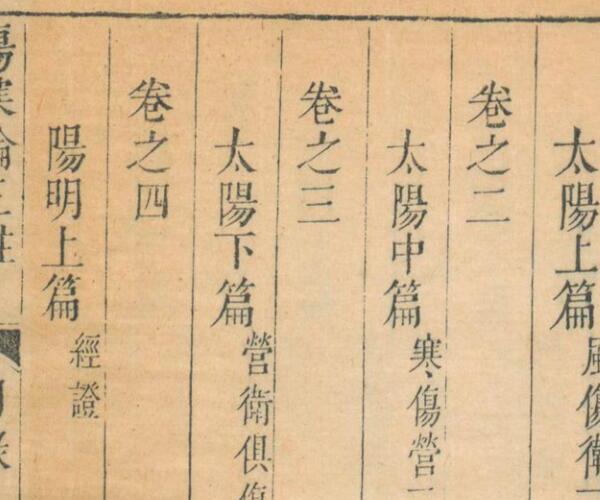 太陽上篇 風傷衛
卷之二
太陽中篇 寒傷營
卷之三
太陽下篇 營衛俱傷
卷之四
陽明上篇 經證
傷寒論三註 目錄